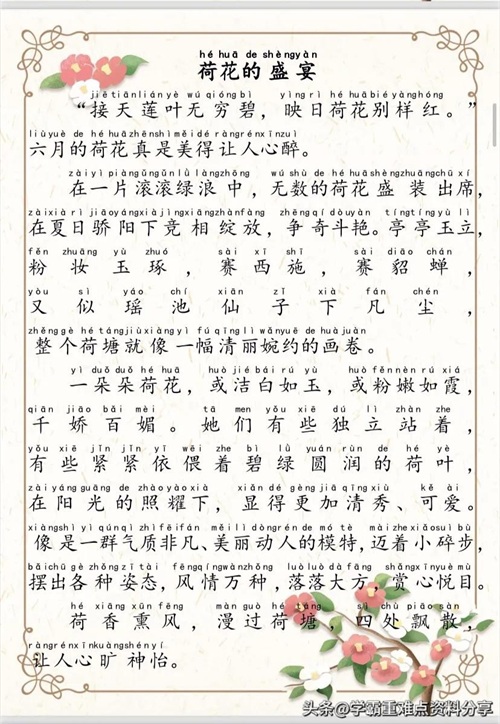 hé huā de shèngyàn
荷花的盛宴
jiētiānliányè wú qióngbì, yìngrì héhuābiéyànghóng
“接天莲叶无穷碧，映日荷花别样红。”
liùyuè de héhuāzhēnshìměidé ràngrénxīnzuì
六月的荷花真是美得让人心醉。
zàiyīpiàngǔngǔnlǜlàngzhōng wúshù de héhuāshèngzhuāngchūxí
在一片滚滚绿浪中，无数的荷花盛装出席，
zàixiàrìjiāoyángxiàjìngxiāngzhànfàng zhēngqídòuyàn tíngtíngyùlì
在夏日骄阳下竞相绽放，争奇斗艳。亭亭玉立，
fěn zhuāng yù zhuó sài xī shī sài diāo chán
粉妆玉琢，赛西施，赛貂蝉，
yòu sì yáo chí xiān zǐ xià fán chén
又似瑶池仙子下凡尘，
zhěnggè hétángjiùxiàngyī fúqīnglìwǎnyuē de huàjuàn
整个荷塘就像一幅清丽婉约的画卷。
yì duǒduǒhé huā huòjiébáirúyù huòfěnnènrúxiá
一朵朵荷花，或洁白如玉，或粉嫩如霞，
qiān jiāo bǎi mèi tā men yǒu xiē dú lì zhàn zhe
千娇百媚。她们有些独立站着，
yǒu xiē jǐn jǐn yī wēi zhe bì lǜ yuán rùn de hé yè
有些紧紧依偎着碧绿圆润的荷叶，
zàiyángguāng de zhàoyàoxià xiǎndé gèngjiāqīngxiù kě ài
在阳光的照耀下，显得更加清秀、可爱。
xiàngshìyìqúnqìzhìfēifán měilìdòngrénde mótè màizhexiǎosuìbù
像是一群气质非凡、美丽动人的模特，迈着小碎步，
bǎichūgèzhǒngzītài fēngqíngwànzhǒng luòluòdàfāng shǎngxīnyuèmù
摆出各种姿态，风情万种，落落大方，赏心悦目。
hé xiāng xūn fēng màn guò hé táng sì chù piāo sàn
荷香熏风，漫过荷塘，四处飘散，
ràngrénxīnkuàngshényí
让人心旷神怡。
头条@学霸重难点资料分享